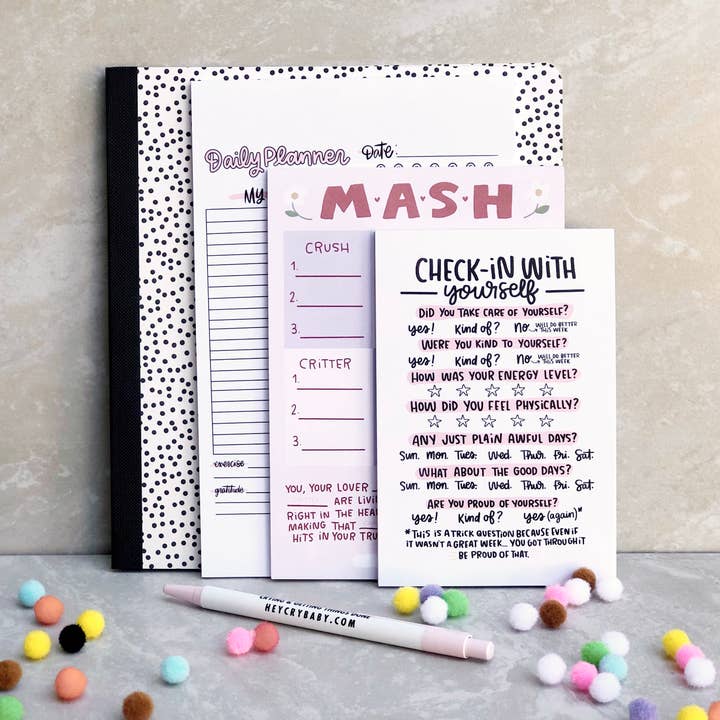 Daily Planner Date:
MY
exercise
gratitude
MASH
CRUSH
1.
2.
3.
CRITTER
1.
2.
3.
YOU, YOUR LOVER
ARE LIVIN
RIGHT IN THE HEA
MAKING THAT
HITS IN YOUR TRU
CHECK-IN WITH
yourself
DID YOU TAKE CARE OF YOURSELF?
yes! Kind of? No WILL DO BETTER THIS WEEK
WERE YOU KIND TO YOURSELF?
yes! Kind of? No WILL DO BETTER THIS WEEK
HOW WAS YOUR ENERGY LEVEL?
HOW DID YOU FEEL PHYSICALLY?
ANY JUST PLAIN AWFUL DAYS?
Sun. Mon. Tues. Wed. Thur. Fri. Sat.
WHAT ABOUT THE GOOD DAYS?
Sun. Mon. Tues. Wed. Thur. Fri. Sat.
ARE YOU PROUD OF YOURSELF?
yes! Kind of? yes (again)*
*THIS IS A TRICK QUESTION BECAUSE EVEN IF
IT WASN'T A GREAT WEEK... YOU GOT THROUGH IT
BE PROUD OF THAT.
CRYING & GETTING THINGS DONE
HEYCRYBABY.COM